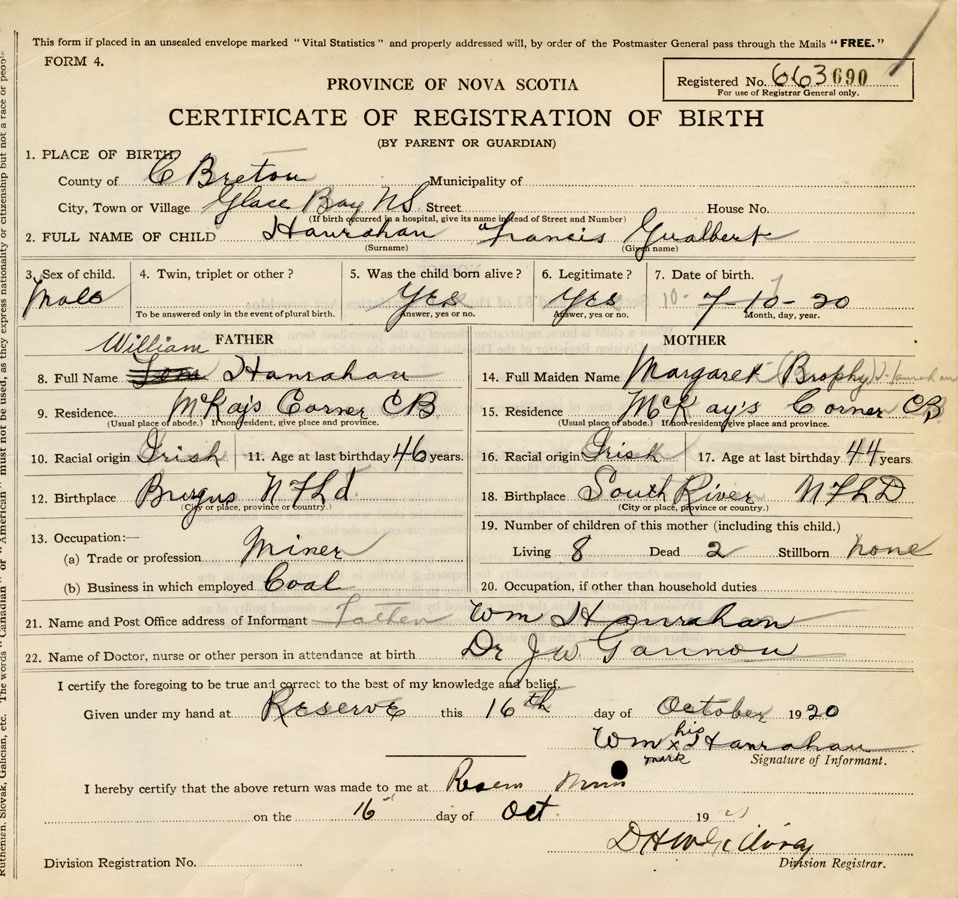 This form if placed in an unsealed envelope marked "Vital Statistics" and properly addressed will, by order of the Postmaster General pass through the Mails "FREE."
FORM 4.
Registered No. 663690
For use of Registrar General only.
PROVINCE OF NOVA SCOTIA
CERTIFICATE OF REGISTRATION OF BIRTH
(BY PARENT OR GUARDIAN)
1. PLACE OF BIRTH
County of C Breton Municipality of
City, Town or Village Glace Bay NS Street House No.
(If birth occurred in a hospital, give its name instead of Street and Number)
2. FULL NAME OF CHILD Hanrahan Francis Gualbert
(Surname) (Given name)
3. Sex of child. 4. Twin, triplet or other? 5. Was the child born alive? 6. Legitimate? 7. Date of birth.
Male YES Yes 10- 7-10-20
To be answered only in the event of plural birth. Answer, yes or no. Answer, yes or no. Month, day, year.
FATHER MOTHER
William
8. Full Name Tom Hanrahan 14. Full Maiden Name Margaret (Brophy) Hanrahan
9. Residence. McKay's Corner CB 15. Residence McKay's Corner CB
(Usual place of abode.) If non-resident, give place and province. (Usual place of abode.) If non-resident, give place and province.
10. Racial origin Irish 11. Age at last birthday 46 years. 16. Racial origin Irish 17. Age at last birthday 44 years.
12. Birthplace Burgus NFLd. 18. Birthplace South River NFLD
(City or place, province or country.) (City or place, province or country.)
19. Number of children of this mother (including this child.)
13. Occupation:—
(a) Trade or profession Miner Living 8 Dead 2 Stillborn none
(b) Business in which employed Coal 20. Occupation, if other than household duties
21. Name and Post Office address of Informant Father Wm Hanrahan
22. Name of Doctor, nurse or other person in attendance at birth Dr J W
I certify the foregoing to be true and correct to the best of my knowledge and belief.
Given under my hand at Reserve this 16th day of October 1920
Wm his x mark Hanrahan
Signature of Informant.
I hereby certify that the above return was made to me at
on the 16 day of Oct 19
D H
Division Registration No. Division Registrar.
Ruthenian, Slovak, Galician, etc. The words "Canadian" or "American" must not be used, as they express nationality or citizenship but not a race or people